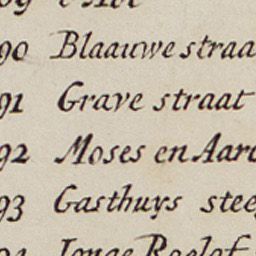 90 Blaauwe straa
91 Grave straat
92 Moses en Aaro
93 Gasthuys stee
Jonge Roelof